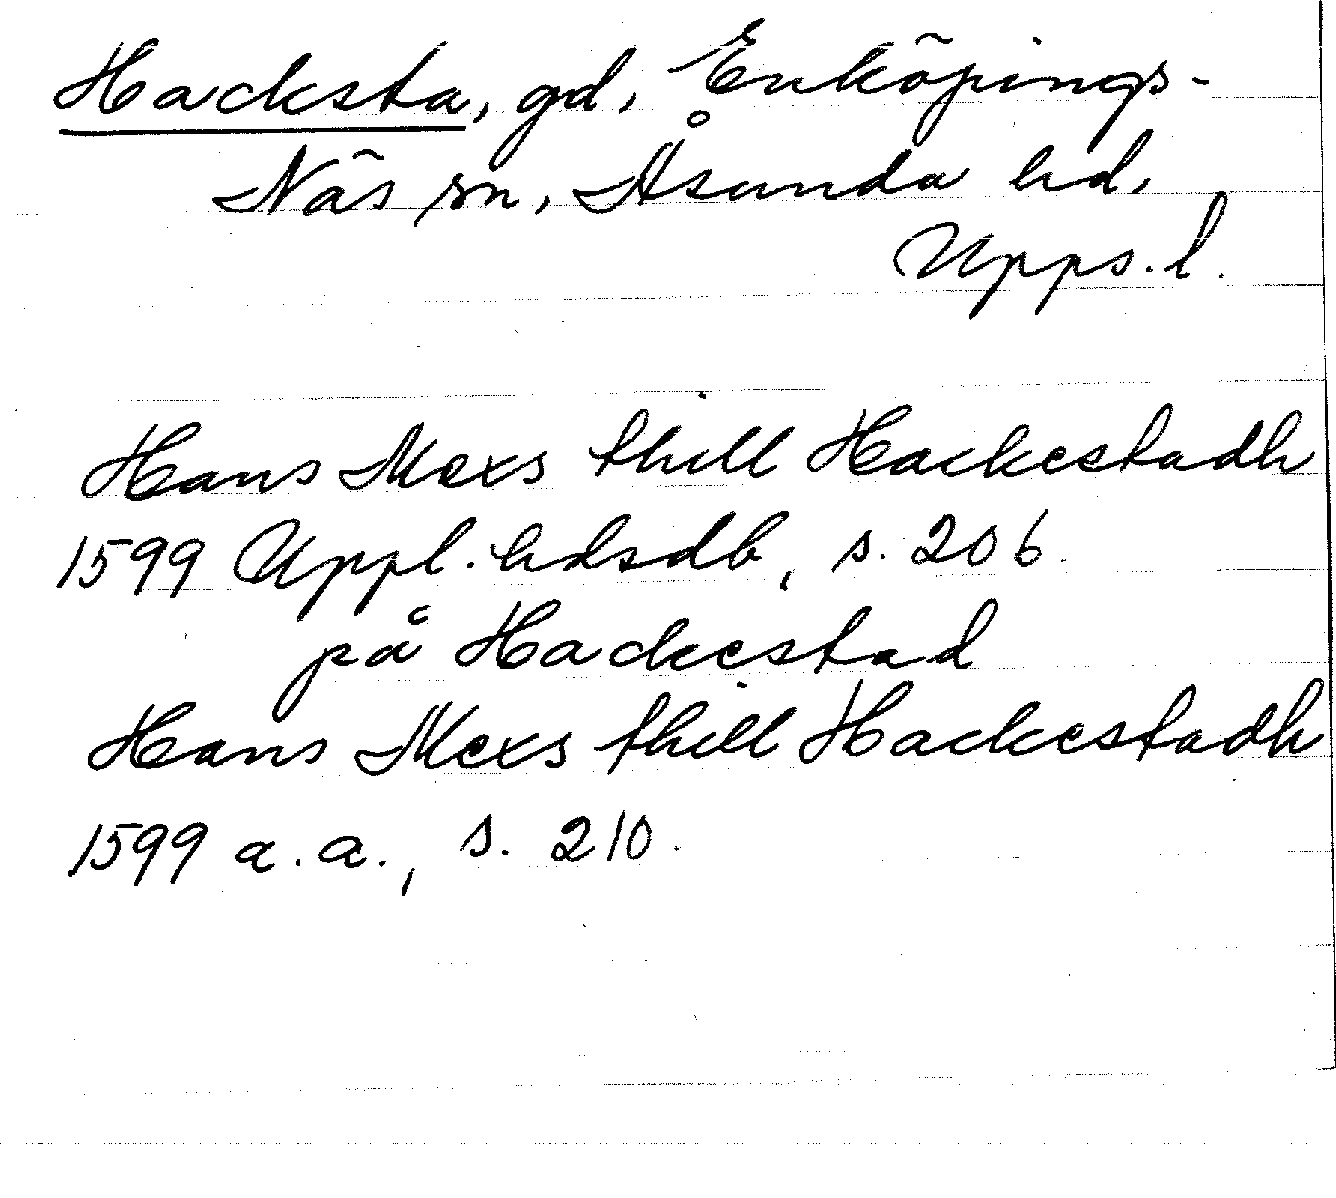 Hacksta, gd, Enköpings-
Näs sn, Åsunda hd,
Upps. l.
Hans Mexs thill Hackestadh
1599 Uppl. hdsdb, s. 206.
på Hackestad
Hans Mexs thill Hackestadh
1599 a.a., s. 210.